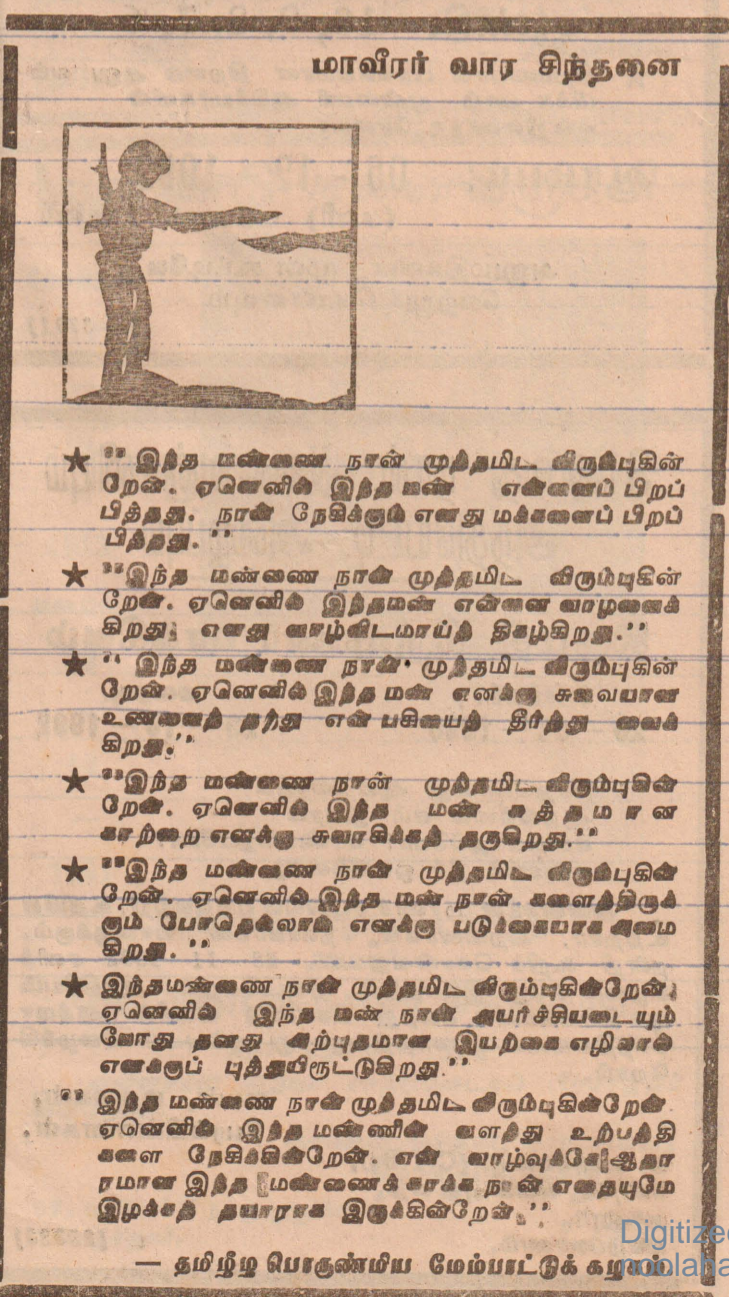 மாவீரர் வார சிந்தனை
★ "இந்த மண்ணை நான் முத்தமிட விரும்புகின்
றேன். ஏனெனில் இந்த மண் என்னைப் பிறப்
பித்தது. நான் நேசிக்கும் எனது மக்களைப் பிறப்
பித்தது."
★ "இந்த மண்ணை நான் முத்தமிட விரும்புகின்
றேன். ஏனெனில் இந்தமண் என்னை வாழவைக்
கிறது; எனது வாழ்விடமாய்த் திகழ்கிறது."
★ "இந்த மண்ணை நான் முத்தமிட விரும்புகின்
றேன். ஏனெனில் இந்த மண் எனக்கு சுவையான
உணவைத் தந்து என் பசியைத் தீர்த்து வைக்
கிறது."
★ "இந்த மண்ணை நான் முத்தமிட விரும்புகின்
றேன். ஏனெனில் இந்த மண் சுத்தமான
காற்றை எனக்கு சுவாசிக்கத் தருகிறது."
★ "இந்த மண்ணை நான் முத்தமிட விரும்புகின்
றேன். ஏனெனில் இந்த மண் நான் களைத்திருக்
கும் போதெல்லாம் எனக்கு படுக்கையாக அமை
கிறது."
★ இந்தமண்ணை நான் முத்தமிட விரும்புகின்றேன்.
ஏனெனில் இந்த மண் நான் அயர்ச்சியடையும்
போது தனது அற்புதமான இயற்கை எழிலால்
எனக்குப் புத்துயிரூட்டுகிறது."
"இந்த மண்ணை நான் முத்தமிட விரும்புகின்றேன்
ஏனெனில் இந்த மண்ணின் வளத்து உற்பத்தி
களை நேசிக்கின்றேன். என் வாழ்வுக்கே ஆதா
ரமான இந்த மண்ணைக் காக்க நான் எதையுமே
இழக்கத் தயாராக இருக்கின்றேன்."
— தமிழீழ பொருண்மிய மேம்பாட்டுக் கழகம்.